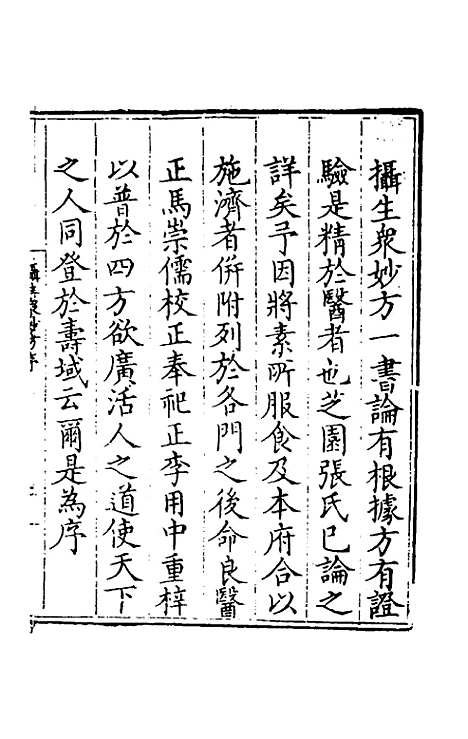 攝生衆妙方一書論有根據方有證
驗是精於醫者也芝園張氏已論之
詳矣予因將素所服食及本府合以
施濟者併附列於各門之後命良醫
正馬崇儒校正奉祀正李用中重梓
以普於四方欲廣活人之道使天下
之人同登於壽域云爾是為序
攝生衆妙方序